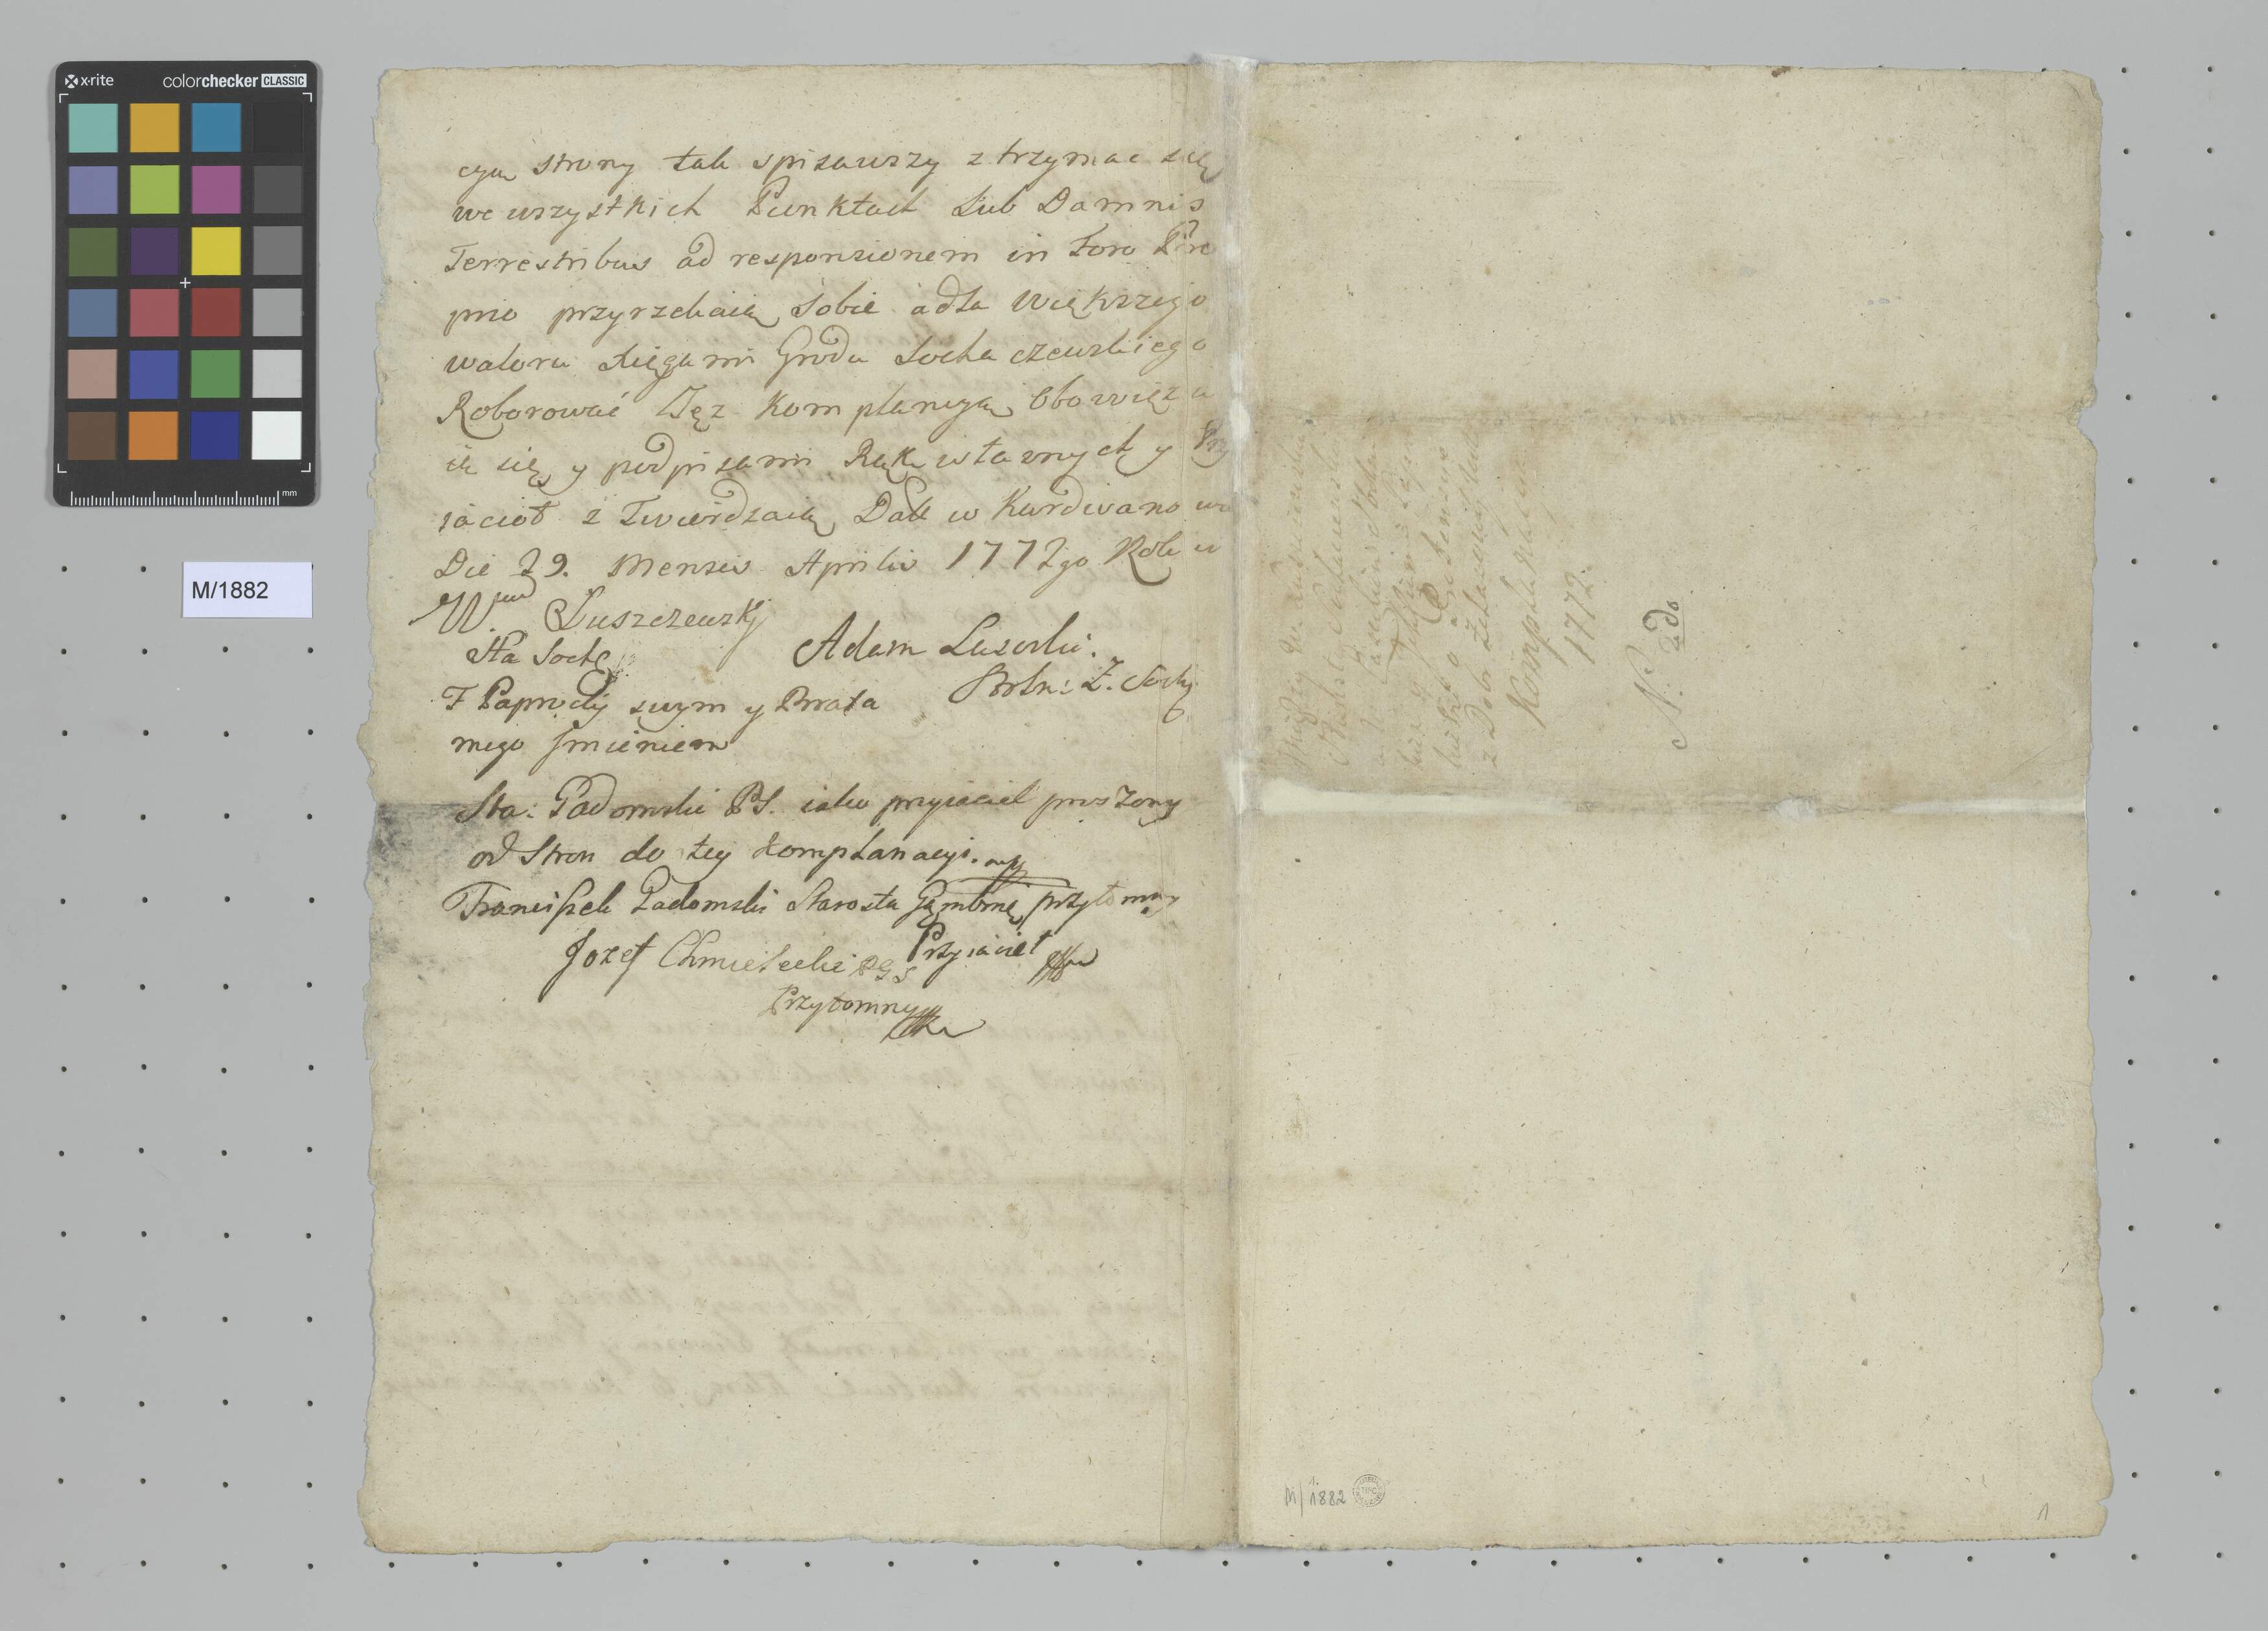 x-rite colorchecker CLASSIC
mm
M/1882
strony tak spisawszy ztrzymac się
we wszystkich Punktach Sub Damnis
Terrestribus ad responsionem in Foro
przyrzekaią Sobie adla większego
waloru Xięgami Grodu Sochaczewskiego
Roborować Tęz Komplanycyą Obowięzu
ią się y podpisami Rąk własnych y Przy
iaciół ztwierdzaią Datt w Kurdwanowie
Die 29. Mensis Aprilis 1772go Roku
Łuszczewskj
Sta Soch
Adam Lasocki.
Stoln: Z. Sochj
F Paprockj swym y Brata
mego Jmieniem
Sta: Gadomski PS. iako przyiaciel proszony
od Stron do tey Komplanacyi. mp
Franciszek Gadomski Starosta Gąmbinś, przytomny
Przyiaciel
Jozef Chmielecki PGS
Przytomny
Kompla
1772.
N. 2do
M/1882
1